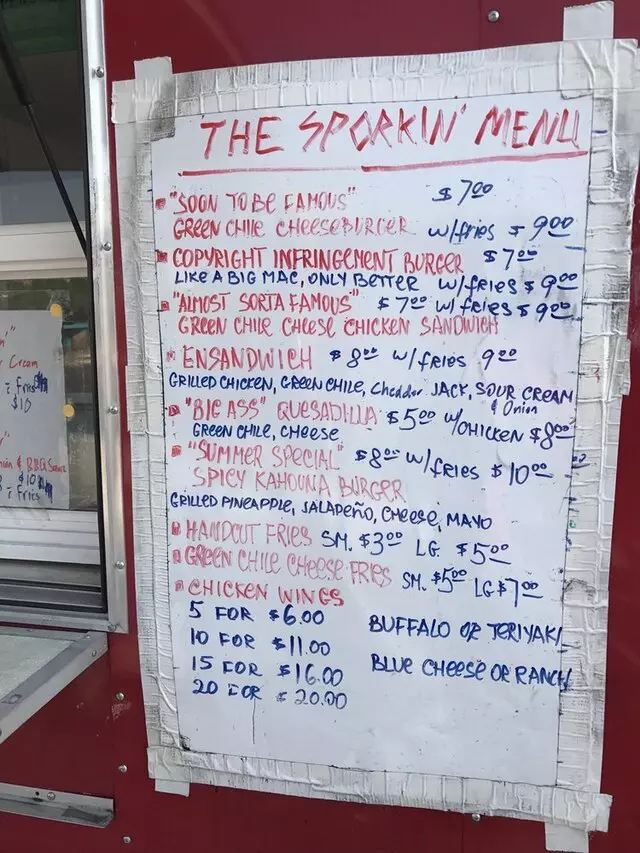 THE SPORKIN' MENU
"SOON TO BE FAMOUS" $7.00
GREEN CHILE CHEESEBURGER w/fries $9.00
COPYRIGHT INFRINGEMENT BURGER $7.00
LIKE A BIG MAC, ONLY BETTER w/fries $9.00
"ALMOST SORTA FAMOUS" $7.00 w/fries $9.00
GREEN CHILE CHEESE CHICKEN SANDWICH
ENSANDWICH $8.00 w/fries 9.00
GRILLED CHICKEN, GREEN CHILE, Cheddar JACK, SOUR CREAM
& Onion
"BIG ASS" QUESADILLA $5.00 w/CHICKEN $8.00
GREEN CHILE, CHEESE
"SUMMER SPECIAL" $8.00 w/fries $10.00
SPICY KAHOUNA BURGER
GRILLED PINEAPPLE, JALAPEÑO, CHEESE, MAYO
HANDCUT FRIES SM. $3.00 LG $5.00
GREEN CHILE CHEESE FRIES SM. $5.00 LG $7.00
CHICKEN WINGS
5 FOR $6.00
BUFFALO or TERIYAKI
10 FOR $11.00
15 FOR $16.00
BLUE CHEESE OR RANCH
20 FOR $20.00
Cream
Fries
$10
& BBQ Sauce
$10
Fries